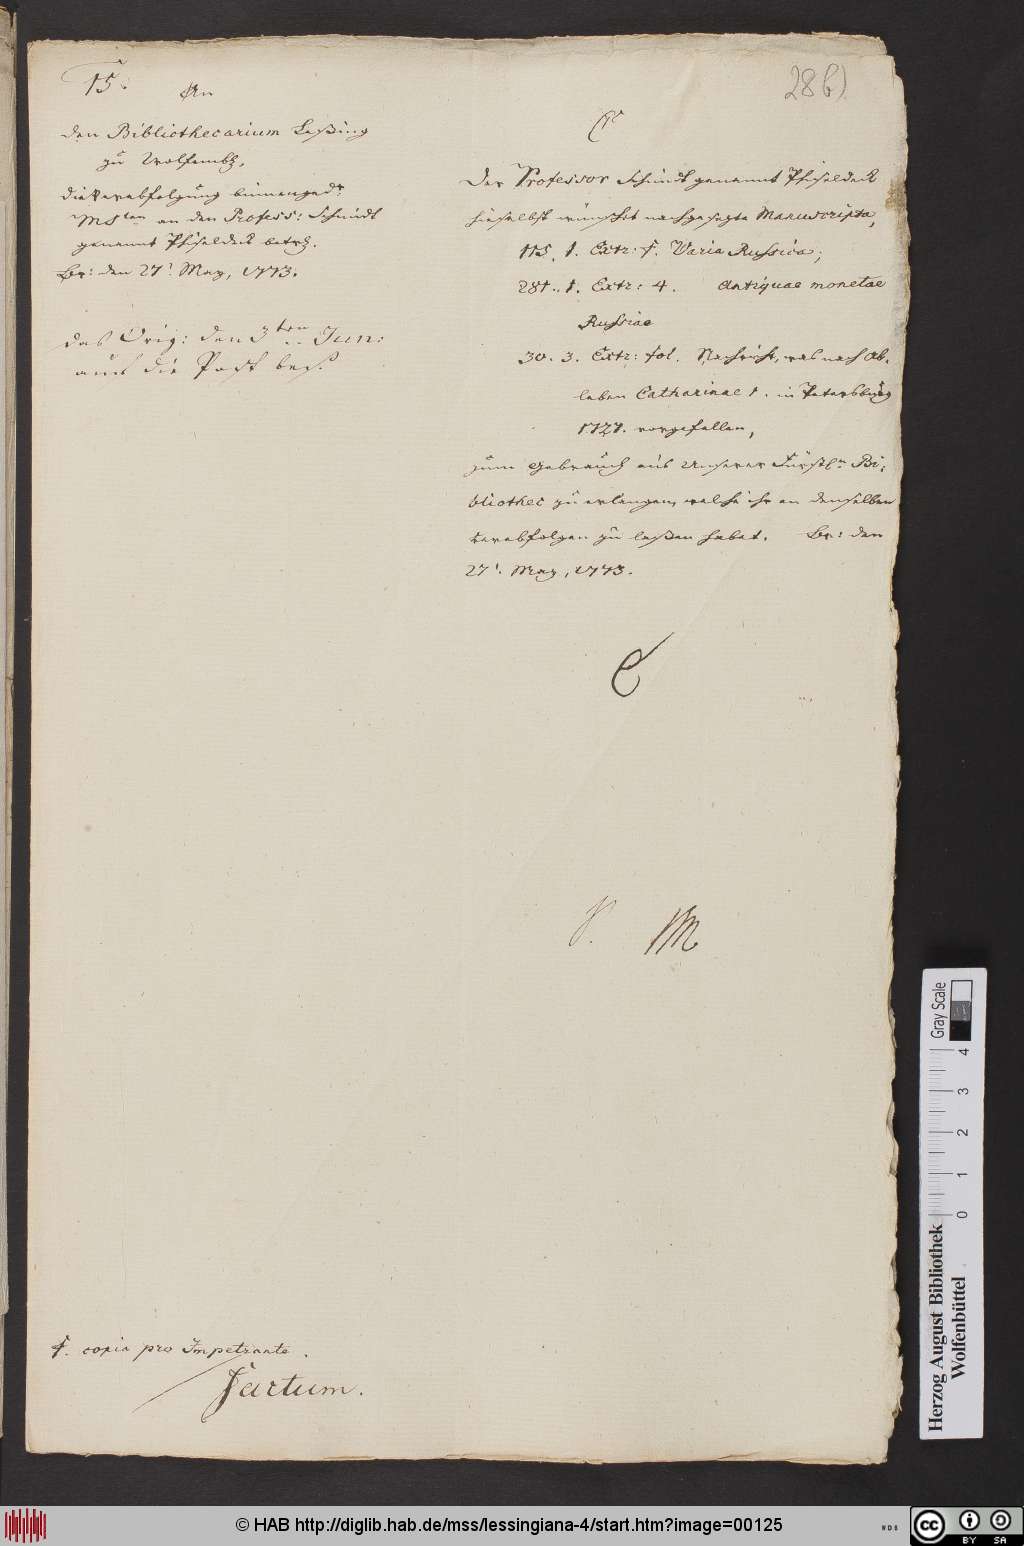 15.
An
den Bibliothecarium Leßing
zu Wolfenb.
die Verabfolgung beinengedr.
MSten an den Profess: Schmidt
genannt Phiseldeck betr.
Br: den 27t. May, 1773.
das Orig: den 3ten Jun:
auf die Post bes.
28 b)
Der Professor Schmidt genannt Phiseldeck
hieselbst wünschet nachgesezte Manuscripta,
115. 1. Extr: f. Varia Russica;
281. 1. Extr: 4. Antiquae monetae
Russiae
30. 3. Extr: fol. Nachricht, was nach Ab-
leben Catharinae 1. in Petersburg
1727. vorgefallen,
zum Gebrauch aus Unserer Fürstln. Bi-
bliothec zu erlangen, welche ihr an denselben
verabfolgen zu laßen habet. Br: den
27t. May, 1773.
C
f. copia pro Impetrante.
factum.
Gray Scale
0 1 2 3 4
Herzog August Bibliothek
Wolfenbüttel
© HAB http://diglib.hab.de/mss/lessingiana-4/start.htm?image=00125
WDB
cc BY SA